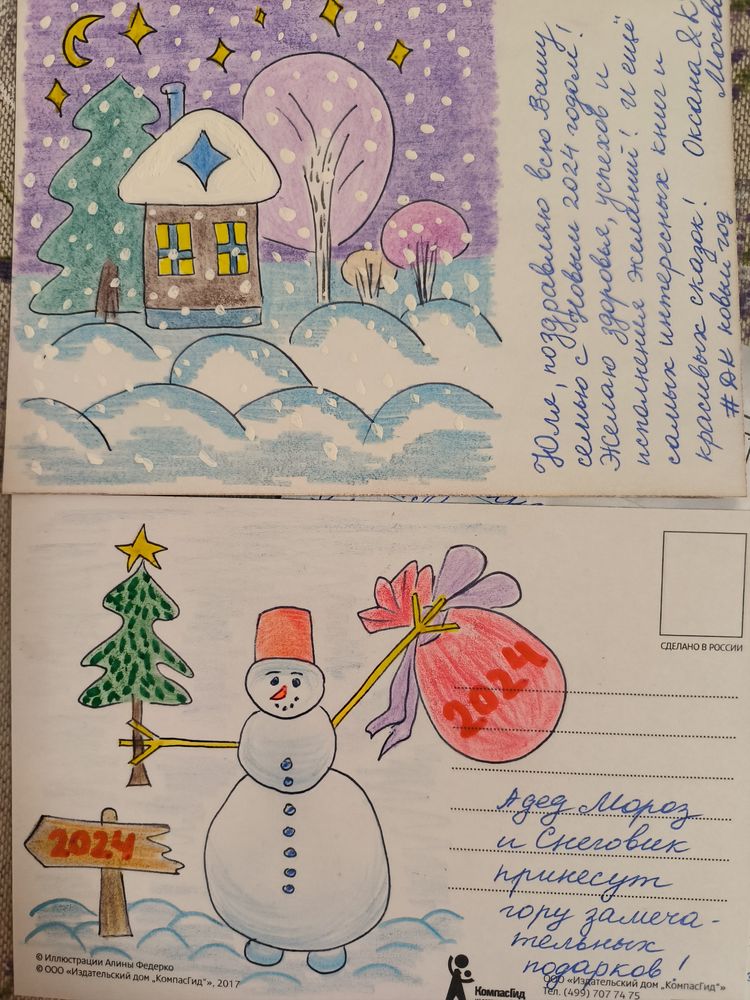 Юля, поздравляю всю Вашу
семью с Новым 2024 годом!
Желаю здоровья, успехов и
исполнения желаний! И ещё
самых интересных книг и
красивых сказок! Оксана Я.К
#ДК новый год Москва
СДЕЛАНО В РОССИИ
2024
2024
А дед Мороз
и Снеговик
принесут
гору замеча-
тельных
подарков!
© Иллюстрации Алины Федерко
© ООО «Издательский дом „КомпасГид"», 2017
КомпасГид
ООО «Издательский дом „КомпасГид"»
Тел. (499) 707 74 75